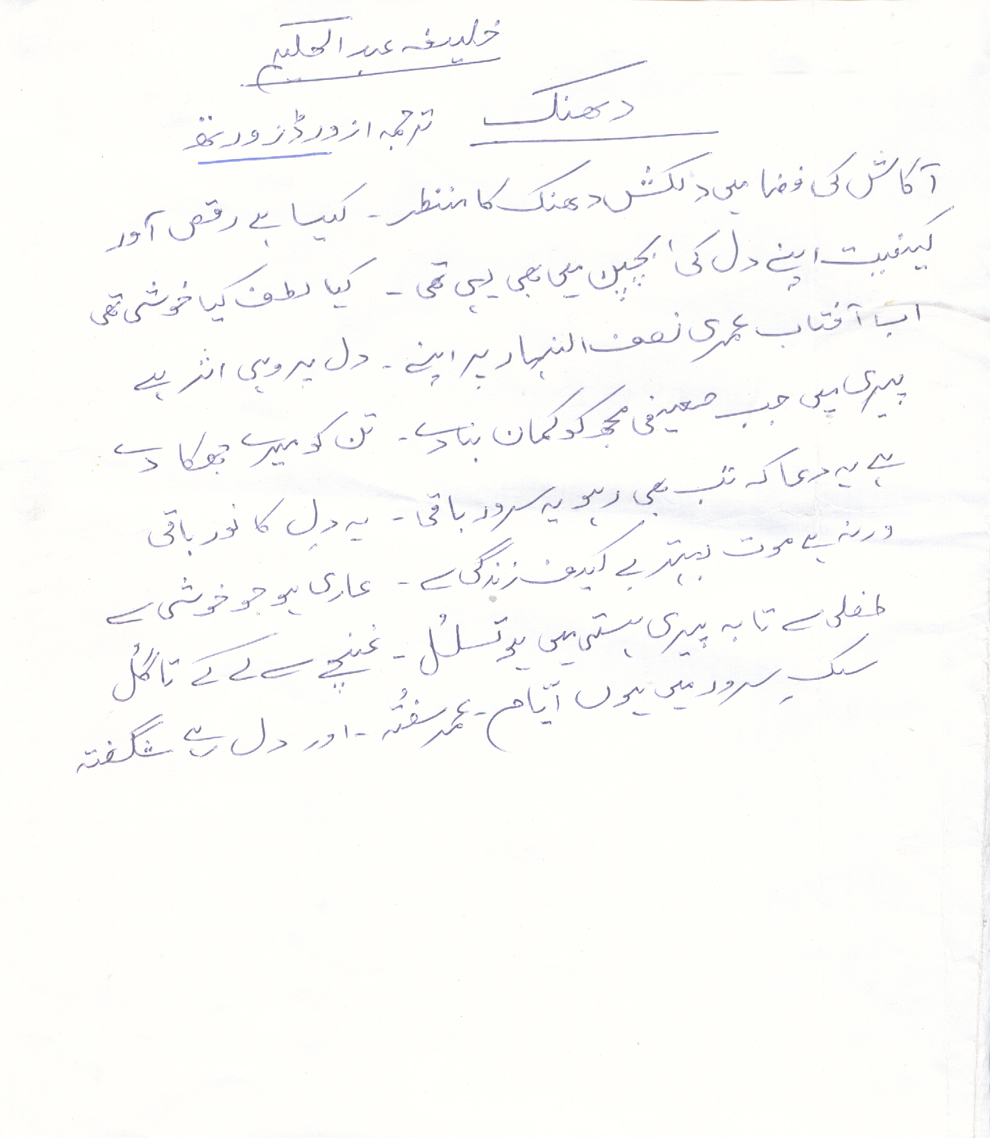 خلیفہ عبدالحکیم
دھنک ترجمہ از ورڈزورتھ
آکاش کی فضا میں دلکش دھنک کا منظر ۔ کیسا ہے رقص آور
کیفیت اپنے دل کی بچپن میں بھی یہی تھی ۔ کیا لطف کیا خوشی تھی
اب آفتاب عمری نصف النہار پر اپنے ۔ دل پر وہی اثر ہے
پیری میں جب ضعیفی مجھ کو کمان بنا دے ۔ تن کو میرے جھکا دے
ہے یہ دعا کہ تب بھی ہو یہ سرور باقی ۔ یہ دِل کا نور باقی
ورنہ ہے موت بہتر بے کیف زندگی سے ۔ عاری ہو جو خوشی سے
طفلی سے تا بہ پیری ہستی میں ہو تسلسُل ۔ غنچے سے لے کے تا گُل
سلکِ سرور میں ہوں ایّام ۔ عمر سفتُہ ۔ اور دل رہے شگفتہ